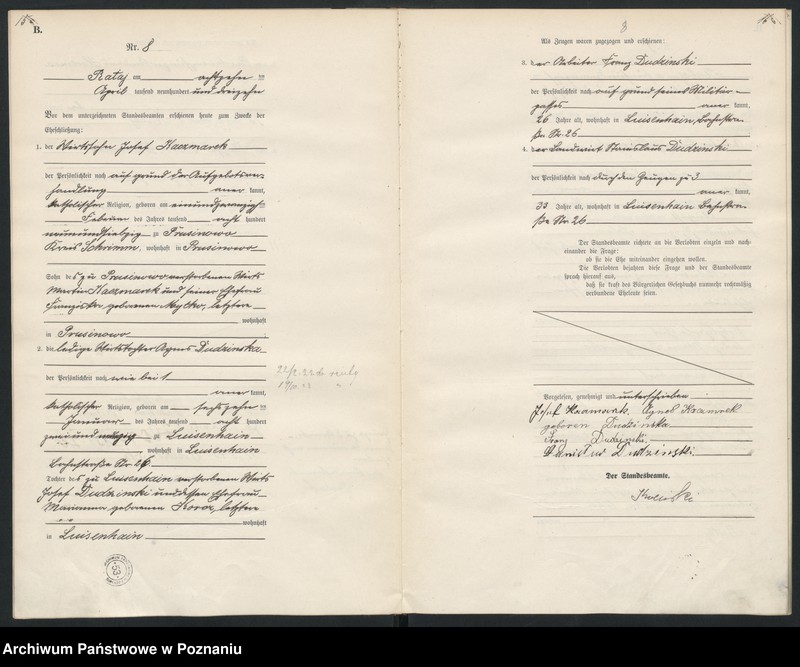 B.
Nr. 8
Rataj am achtzehn ten
April tausend neunhundert und dreizehn
Vor dem unterzeichneten Standesbeamten erschienen heute zum Zwecke der
Eheschließung:
1. der Wirtssohn Josef Kaczmarek
der Persönlichkeit nach auf grund der Aufgebotsver-
handlung kannt,
katholischer Religion, geboren am einundzwanzigsten
Februar des Jahres tausend acht hundert
zu Prusinowo
Kreis Schrimm, wohnhaft in Prusinowo
Sohn des zu Prusinowo verstorbenen Wirts
Martin Kaczmarek und seiner Ehefrau
geborenen letztere
wohnhaft
in Prusinowo
2. die ledige Wirtstochter Agnes Dudzinska
der Persönlichkeit nach wie bei 1
kannt,
katholischer Religion, geboren am sechszehn ten
Januar des Jahres tausend acht hundert
zweiundneunzig zu Luisenhain
wohnhaft in Luisenhain
Nr. 26
Tochter des zu Luisenhain verstorbenen Wirts
Josef Dudzinski und dessen Ehefrau
Marianna geborenen letztere
wohnhaft
in Luisenhain
8
Als Zeugen waren zugezogen und erschienen:
3. der Arbeiter Franz Dudzinski
der Persönlichkeit nach auf grund seines Militär-
passes kannt,
26 Jahre alt, wohnhaft in Luisenhain,
Nr. 26
4. der Landwirt Stanislaus Dudzinski
der Persönlichkeit nach durch den Zeugen zu 3
kannt,
33 Jahre alt, wohnhaft in Luisenhain
Nr. 26
Der Standesbeamte richtete an die Verlobten einzeln und nach-
einander die Frage:
ob sie die Ehe miteinander eingehen wollen.
Die Verlobten bejahten diese Frage und der Standesbeamte
sprach hierauf aus,
daß sie kraft des Bürgerlichen Gesetzbuchs nunmehr rechtmäßig
verbundene Eheleute seien.
Vorgelesen, genehmigt und unterschrieben
Josef Agnes
geboren Dudzinska
Franz Dudzinski
Dudzinski
Der Standesbeamte.
Archiwum Państwowe w Poznaniu